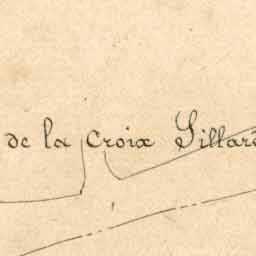 de la Croix Sillaré